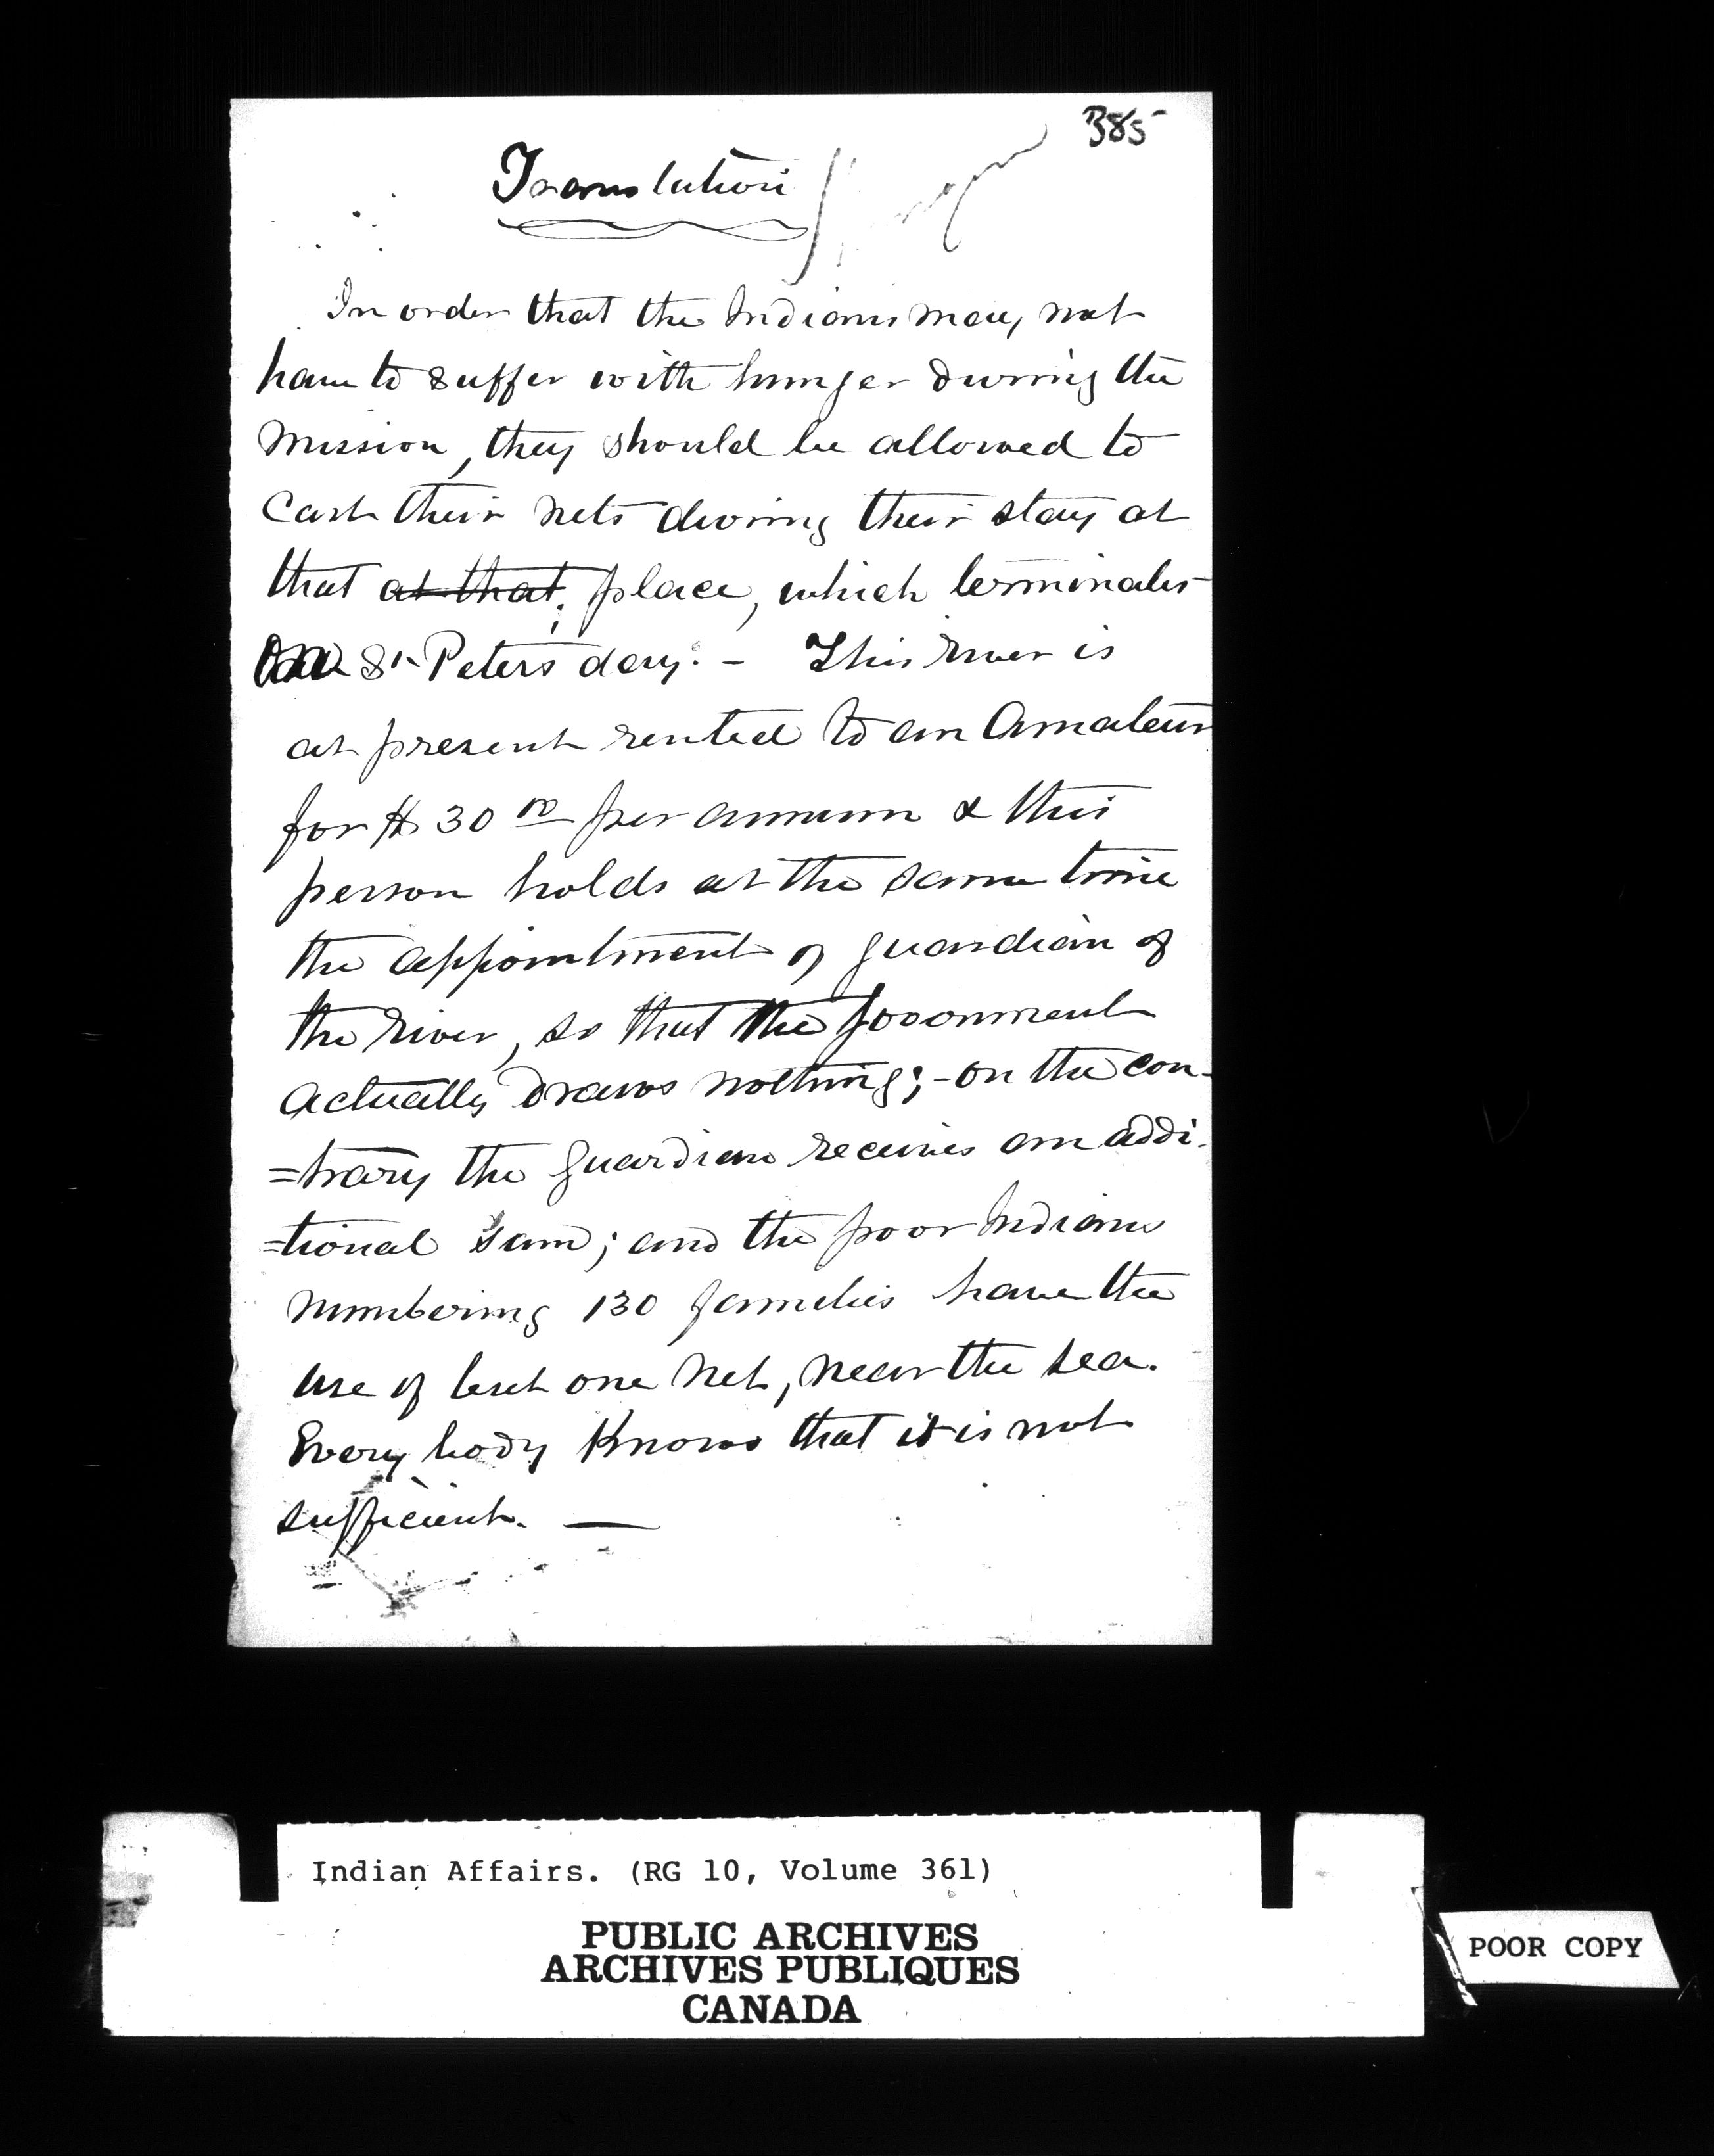 385
Translation
In order that the Indians may not
have to suffer with hunger during the
Mission, they should be allowed to
Cast their nets during their stay at
that at that, place, which terminates
on St Peters day. - This river is
at present rented to an Amateur
for $ 30 00 per annum & this
person holds at the same time
the appointment of guardian of
the river, so that the Government
actually draws nothing; - on the con-
=trary the guardian receives an addi-
=tional sum; and the poor Indians
numbering 130 families have the
use of but one net, near the sea.
Every body Knows that it is not
sufficient. —
Indian Affairs. (RG 10, Volume 361)
PUBLIC ARCHIVES
ARCHIVES PUBLIQUES
CANADA
POOR COPY